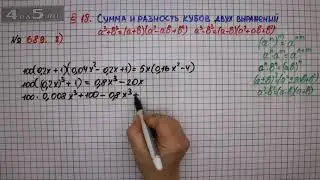 4од5.ru
§ 18. Сумма и разность кубов двух выражений
a³+b³=(a+b)(a²-ab+b²) a³-b³=(a-b)(a²+ab+b²)
№ 689. 2)
100(0,2x+1)(0,04x²-0,2x+1)=5x(0,16x²-4)
100((0,2x)³+1)=0,8x³-20x
100·0,008x³+100-0,8x³